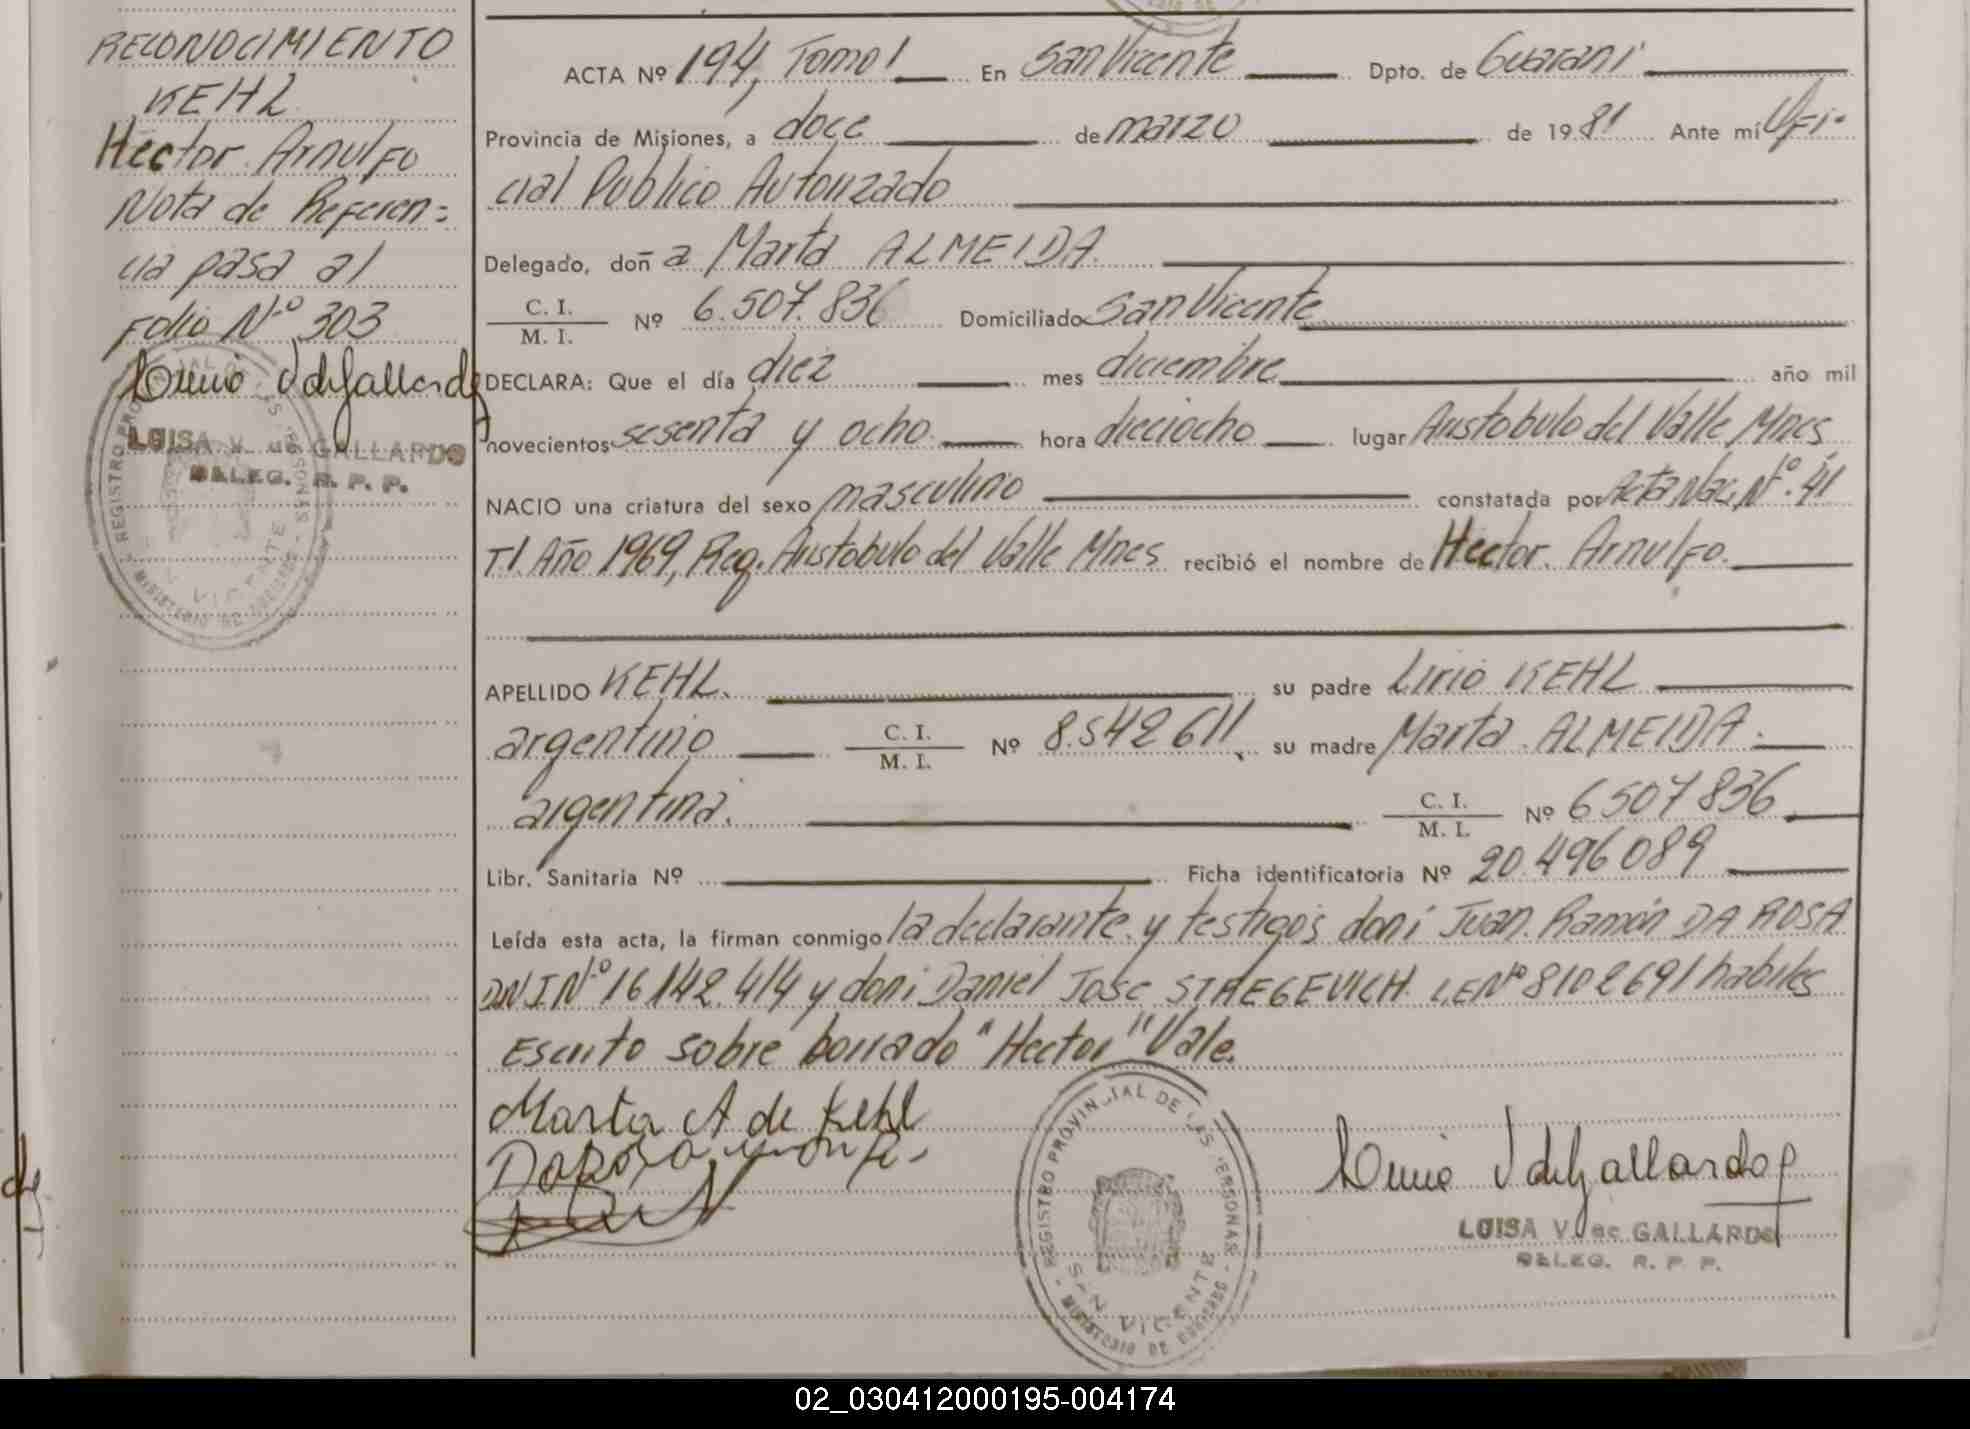 RECONOCIMIENTO
KEHL
Hector Arnulfo
Nota de Referen=
cia pasa al
Folio Nº 303
LUISA V. de GALLARDO
DELEG. R. P. P.
REGISTRO PROVINCIAL DE LAS PERSONAS - SAN VICENTE - MINISTERIO DE GOBIERNO
ACTA Nº 194, Tomo I En San Vicente Dpto. de Guarani
Provincia de Misiones, a doce de marzo de 1981 Ante mí Ofi-
cial Publico Autorizado
Delegado, doña Marta ALMEIDA.
C. I. / M. I. Nº 6.507.836 Domiciliado San Vicente
DECLARA: Que el día diez mes diciembre año mil
novecientos sesenta y ocho hora dieciocho lugar Aristobulo del Valle, Mnes,
NACIO una criatura del sexo masculino constatada por Acta Nac, Nº 41
T I Año 1969, Reg. Aristobulo del Valle Mnes recibió el nombre de Hector. Arnulfo.
APELLIDO KEHL. su padre Lirio KEHL
argentino C. I. / M. I. Nº 8.542611, su madre Marta ALMEIDA.
argentina. C. I. / M. I. Nº 6507836
Libr. Sanitaria Nº Ficha identificatoria Nº 20.496089
Leída esta acta, la firman conmigo la declarante y testigos don: Juan Ramón DA ROSA
DNI Nº 16142.414 y don: Daniel Jose LE Nº 8102691 habiles
Escrito sobre borrado "Hector" Vale.
Marta A de Kehl
LUISA V. de GALLARDO
DELEG. R. P. P.
REGISTRO PROVINCIAL DE LAS PERSONAS - SAN VICENTE - MINISTERIO DE GOBIERNO
02_030412000195-004174